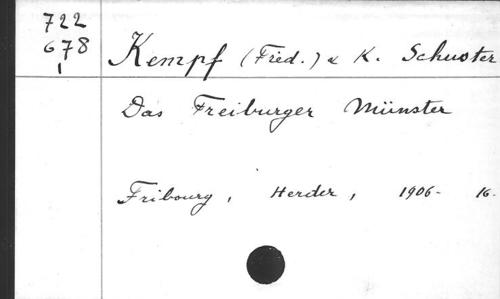 722
678
1
Kempf (Fréd.) & K. Schuster
Das Freiburger Münster
Fribourg, Herder, 1906- 16-